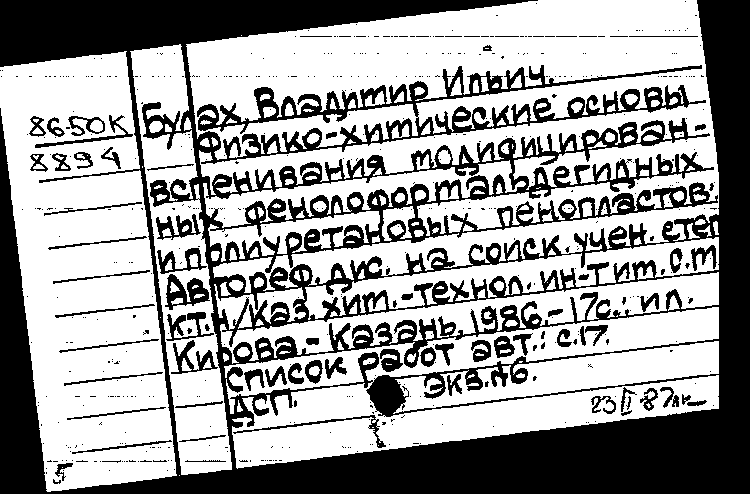 8650К
8894
Булах, Владимир Ильич.
Физико-химические основы
вспенивания модифицирован-
ных фенолоформальдегидных
и полиуретановых пенопластов:
Автореф. дис. на соиск. учен. степ
к.т.н./Каз. хим.-технол. ин-т им. С.М
Кирова.- Казань, 1986.- 17с.: ил.
Список работ авт.: с.17.
ДСП. Экз.№6.
23 II 87
5